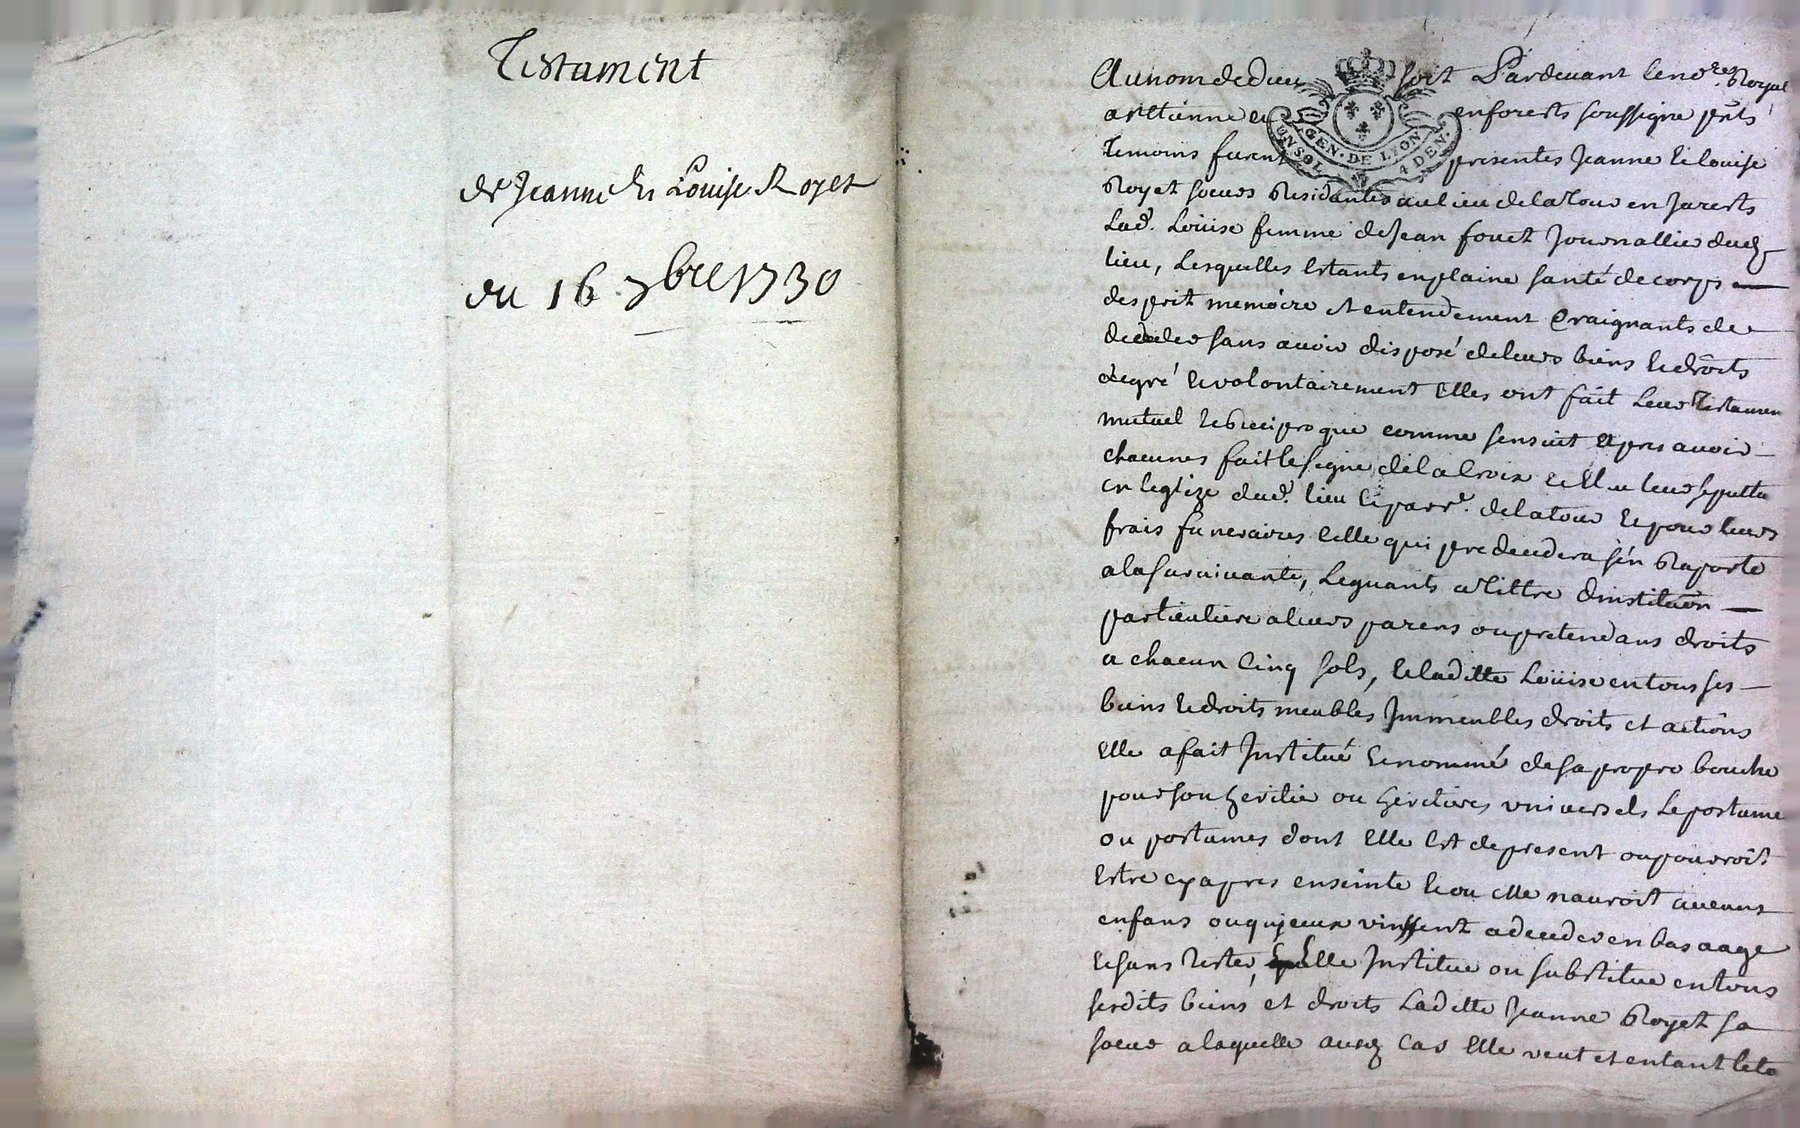 Testament
de Jeanne Et Louise Royet
du 16 7bre 1730
Au nom de dieu soit Pardevant le no.re Royal
a st Etienne en enforests soussigne pñts
Temoins furent presentes Jeanne Et louise
Royet soeurs Residantes au lieu de la Tour en Jarests
Lad.e Loüise femme de Jean fouet Journallier dud
lieu, Lesquelles Estants en plaine santé de corps
desprit memoire et entendement Craignants de
deceder sans avoir disposé de leurs biens Et drôits
de gré Et volontairement Elles ont fait Leur Testamen
mutuel Et Reciproque comme sensuit Apres avoir
chacunes fait le signe de la Croix Et Elu leur sepultu
en leglize dud.t lieu Et parr.e de la tour Et pour leurs
frais funeraires Celle qui predecedera s'en Raporte
a la survivante, Leguants a Tittre dinstituôn
particuliere a leurs parens ou pretendans droits
a chacun Cinq sols, Et laditte Loüise en tous ses
biens Et droits meubles Jmmeubles droits et actiôns
Elle a fait Jnstitué Et nommé de sa propre bouche
pour son heritier ou heritiers universels Le postume
ou postumes dont Elle Est de present ou pourroit
Estre cy apres enseinte Et ou elle nauroit aucuns
enfans ou qujceux vinssent a deceder en bas aage
Et sans tester, Elle Jnstitue ou substitue en tous
sesdits biens et droits Laditte Jeanne Royet sa
soeur a laquelle audq Cas Elle veut et entant